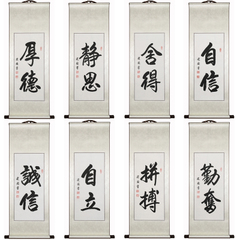 厚德
靜思
舍得
自信
誠信
自立
拼搏
勤奮